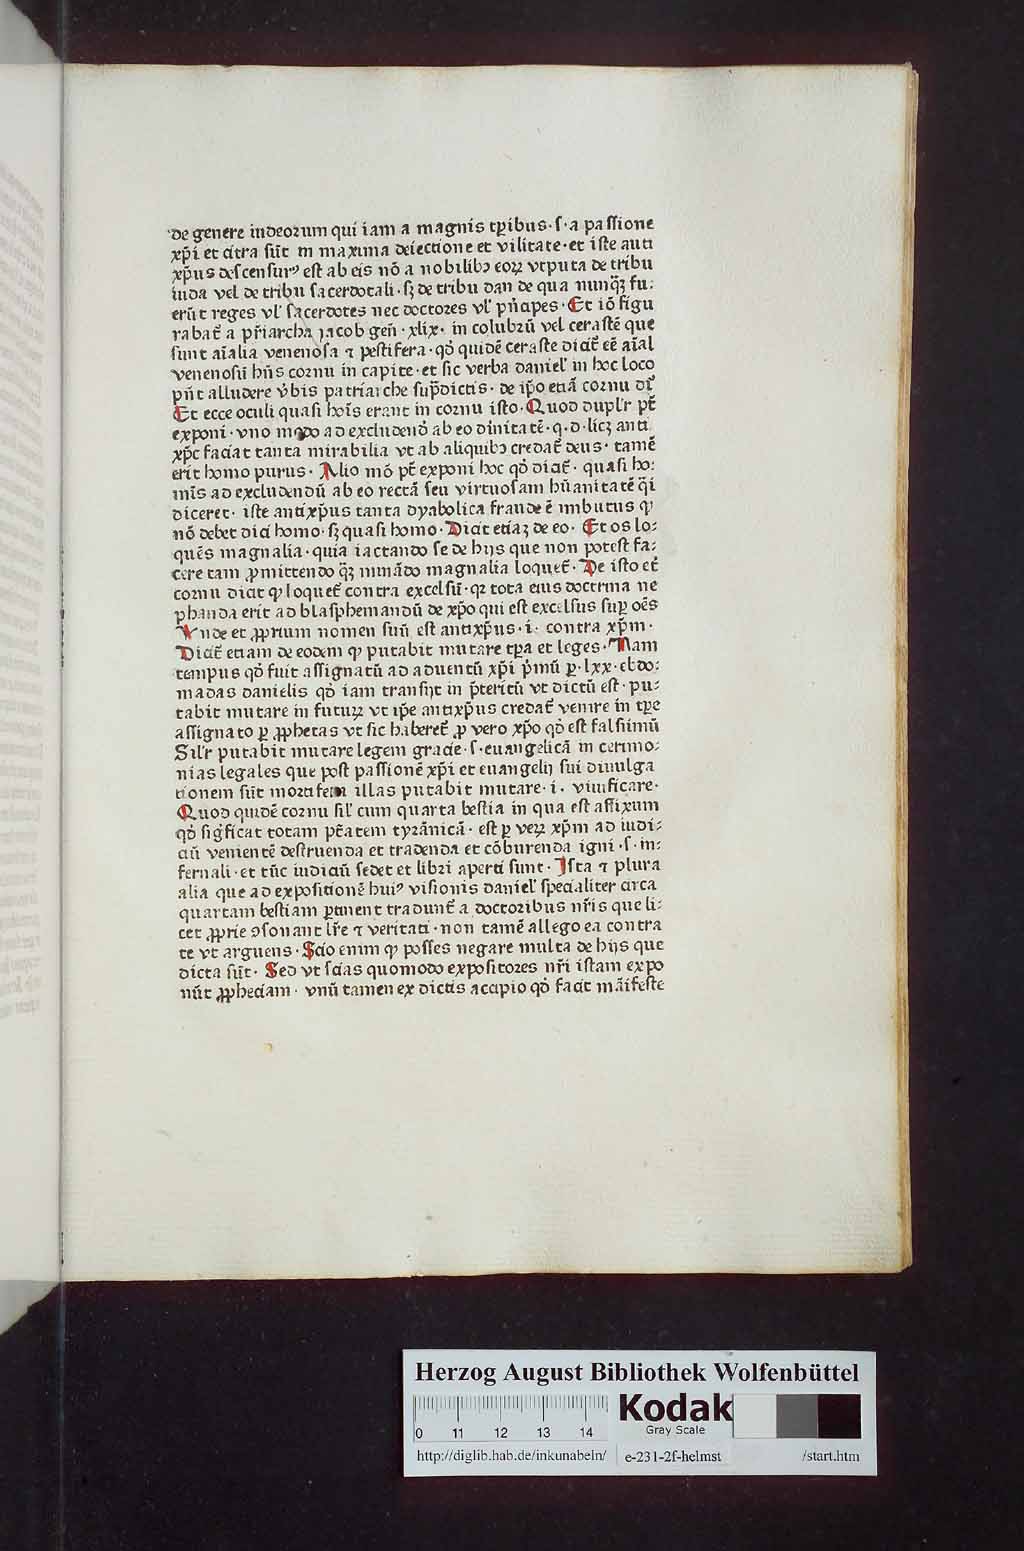 de genere iudeorum qui iam a magnis tꝑibus·ſ·a paſſione
xp̄i et citra ſūt in maxima deiectione et vilitate·et iſte anti
xp̄us deſcenſurꝰ eſt ab eis nō a nobilibꝫ eoꝝ vtputa de tribu
iuda vel de tribu ſacerdotali·ſꝫ de tribu dan de qua nunq̄ꝫ fu⸗
erūt reges vl̓ ſacerdotes nec doctores vl̓ pn̄cipes·Et iō figu
rabat̄ a pr̄iarcha jacob gen̄·xlix· in colubrū vel ceraſtē que
ſunt aīalia venenoſa ⁊ peſtifera·qd̓ quidē ceraſte dicit̄ eē aīal
venenoſū hn̄s cornu in capite·et ſic verba daniel̓ in hoc loco
pn̄t alludere v̓bis patriarche ſup̄dictis·de ip̄o etiā cornu dr̄
Et ecce oculi quaſi hoīs erant in cornu iſto·Quod dupl̓r pt̄
exponi·vno modo ad excludendū ab eo diīnitatē·q·d·licꝫ anti
xp̄c faciat tanta mirabilia vt ab aliquibꝫ credat̄ deus·tamē
erit homo purus· Alio mō pt̄ exponi hoc qd̓ dicit̄·quaſi ho⸗
mīs ad excludendū ab eo rectā ſeu virtuoſam hūanitatē q̄i
diceret·iſte antixp̄us tanta dyabolica fraude ē imbutus ꝙ
nō debet dici homo·ſꝫ quaſi homo·Dicit etiaꝫ de eo· Et os lo⸗
quēs magnalia·quia iactando ſe de hijs que non poteſt fa⸗
cere tam ꝓmittendo q̄ꝫ minādo magnalia loquet̄·De iſto et̄
cornu dicit ꝙ loquet̄ contra excelſū·qꝛ tota eius doctrina ne
phanda erit ad blaſphemandū de xp̄o qui eſt excelſus ſuꝑ oēs
Vnde et ꝓprium nomen ſuū eſt antixp̄us·i· contra xp̄m·
Dicit̄ etiam de eodem ꝙ putabit mutare tꝑa et leges·Nam
tempus qd̓ fuit aſſignatū ad aduentū xp̄i p̓mū ꝑ·lxx·ebdo⸗
madas danielis qd̓ iam tranſijt in p̄teritū vt dictū eſt·pu⸗
tabit mutare in futuꝝ vt ip̄e antixp̄us credat̄ venire in tꝑe
aſſignato ꝑ ꝓphetas vt ſic haberet̄ ꝓ vero xp̄o qd̓ eſt falſiimū
Sil̓r putabit mutare legem gracie·ſ·euangelicā in cerimo⸗
nias legales que poſt paſſionē xp̄i et euangelij ſui diuulga
tionem ſūt mortifere illas putabit mutare·i· viuificare·
Quod quidē cornu ſil̓ cum quarta beſtia in qua eſt affixum
qd̓ ſig̓ficat totam pt̄atem tyrānicā·eſt ꝑ veꝝ xp̄m ad iudi⸗
ciū venientē deſtruenda et tradenda et cōburenda igni·ſ·in⸗
fernali·et tūc iudiciū ſedet et libri aperti ſunt·Iſta ⁊ plura
alia que ad expoſitionē huiꝰ viſionis daniel̓ ſpecialiter circa
quartam beſtiam ꝑtinent tradunt̄ a doctoribus nr̄is que li⸗
cet ꝓprie ↄſonant lr̄e ⁊ veritati·non tamē allego ea contra
te vt arguens·Scio enim ꝙ poſſes negare multa de hijs que
dicta ſūt·Sed vt ſcias quomodo expoſitores nr̄i iſtam expo
nūt ꝓpheciam·vnū tamen ex dictis accipio qd̓ facit māifeſte
Herzog August Bibliothek Wolfenbüttel
Kodak
Gray Scale
0 11 12 13 14
http://diglib.hab.de/inkunabeln/ e-231-2f-helmst /start.htm